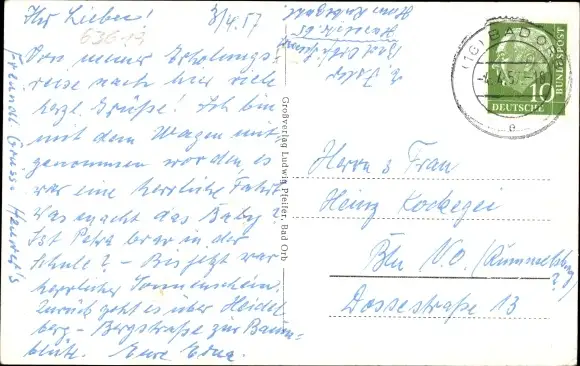 Ihr Lieben! 3/4.57
636-13
Von meiner Erholungs-
reise nach hier viele
herzl. Grüße! Ich bin
mit dem Wagen mit-
genommen worden, es
war eine herrliche Fahrt
Was macht das Baby?
Ist Petra brav in der
Schule? - Bis jetzt war
herrlicher Sonnenschein.
Zurück geht es über Heidel
berg - Bergstraße zur Baum-
blüte. Eure Edna.
Freundl Gruss
Großverlag Ludwig Pfeifer, Bad Orb
(16) BAD OR
-4.4.57-18
e
10
DEUTSCHE
BUNDESPOST
Herrn & Frau
Heinz Kockegei
Bln N.O. (Rummelsburg
?)
Dossestraße 13